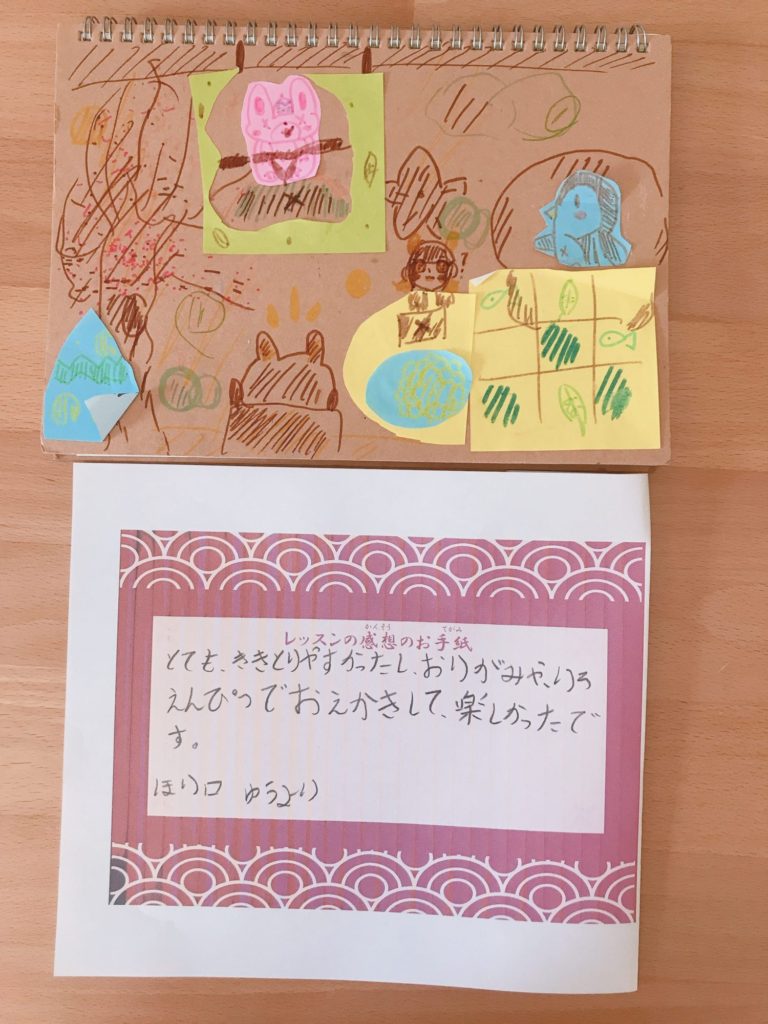 かんそう てがみ
レッスンの感想のお手紙
とても、ききとりやすかったし、おりがみや、いろ
えんぴつでおえかきして、楽しかったで
す。
ほり口